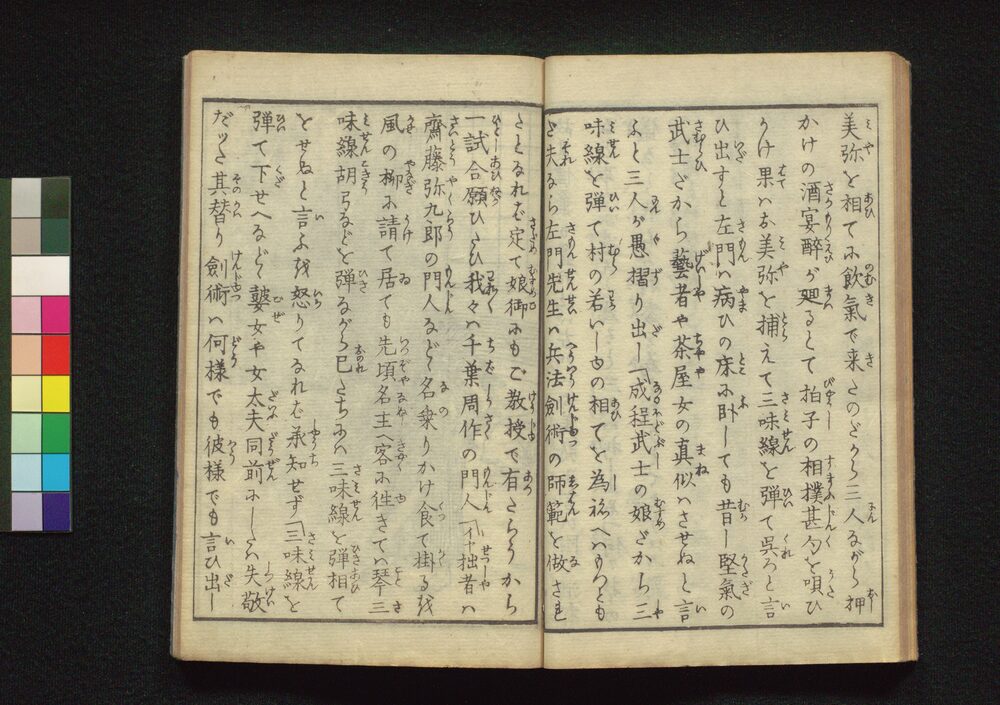 美弥を相てに飲氣で来たのだから三人ながら押
かけの酒宴醉が廻るとて拍子の相撲甚句を唄ひ
かけ果ハお美弥を捕えて三味線を弾て呉ろと言
ひ出すと左門ハ病ひの床に臥しても昔し堅氣の
武士だから藝者や茶屋女の真似ハさせねと言
ふと三人が愚摺り出し「成程武士の娘だから三
味線を弾て村の若いしもの相てを為ねへハもつとも
だ夫なら左門先生ハ兵法劍術の師範を做され
たとなれば定て娘御にもご教授で有たらうから
一試合願ひたひ我々ハ千葉周作の門人「イヤ拙者ハ
齋藤弥九郎の門人などゝ名乗りかけ食て掛るを
風の柳に請て居ても先頃名主へ客に徃きてハ琴三
味線胡弓などを弾ながら己たちにハ三味線を弾相て
をせねと言ふを怒りてなれば承知せず「三味線を
弾て下せへなどゝ瞽女や女太夫同前にしたハ失敬
だつた其替り劍術ハ何様でも彼様でも言ひ出し